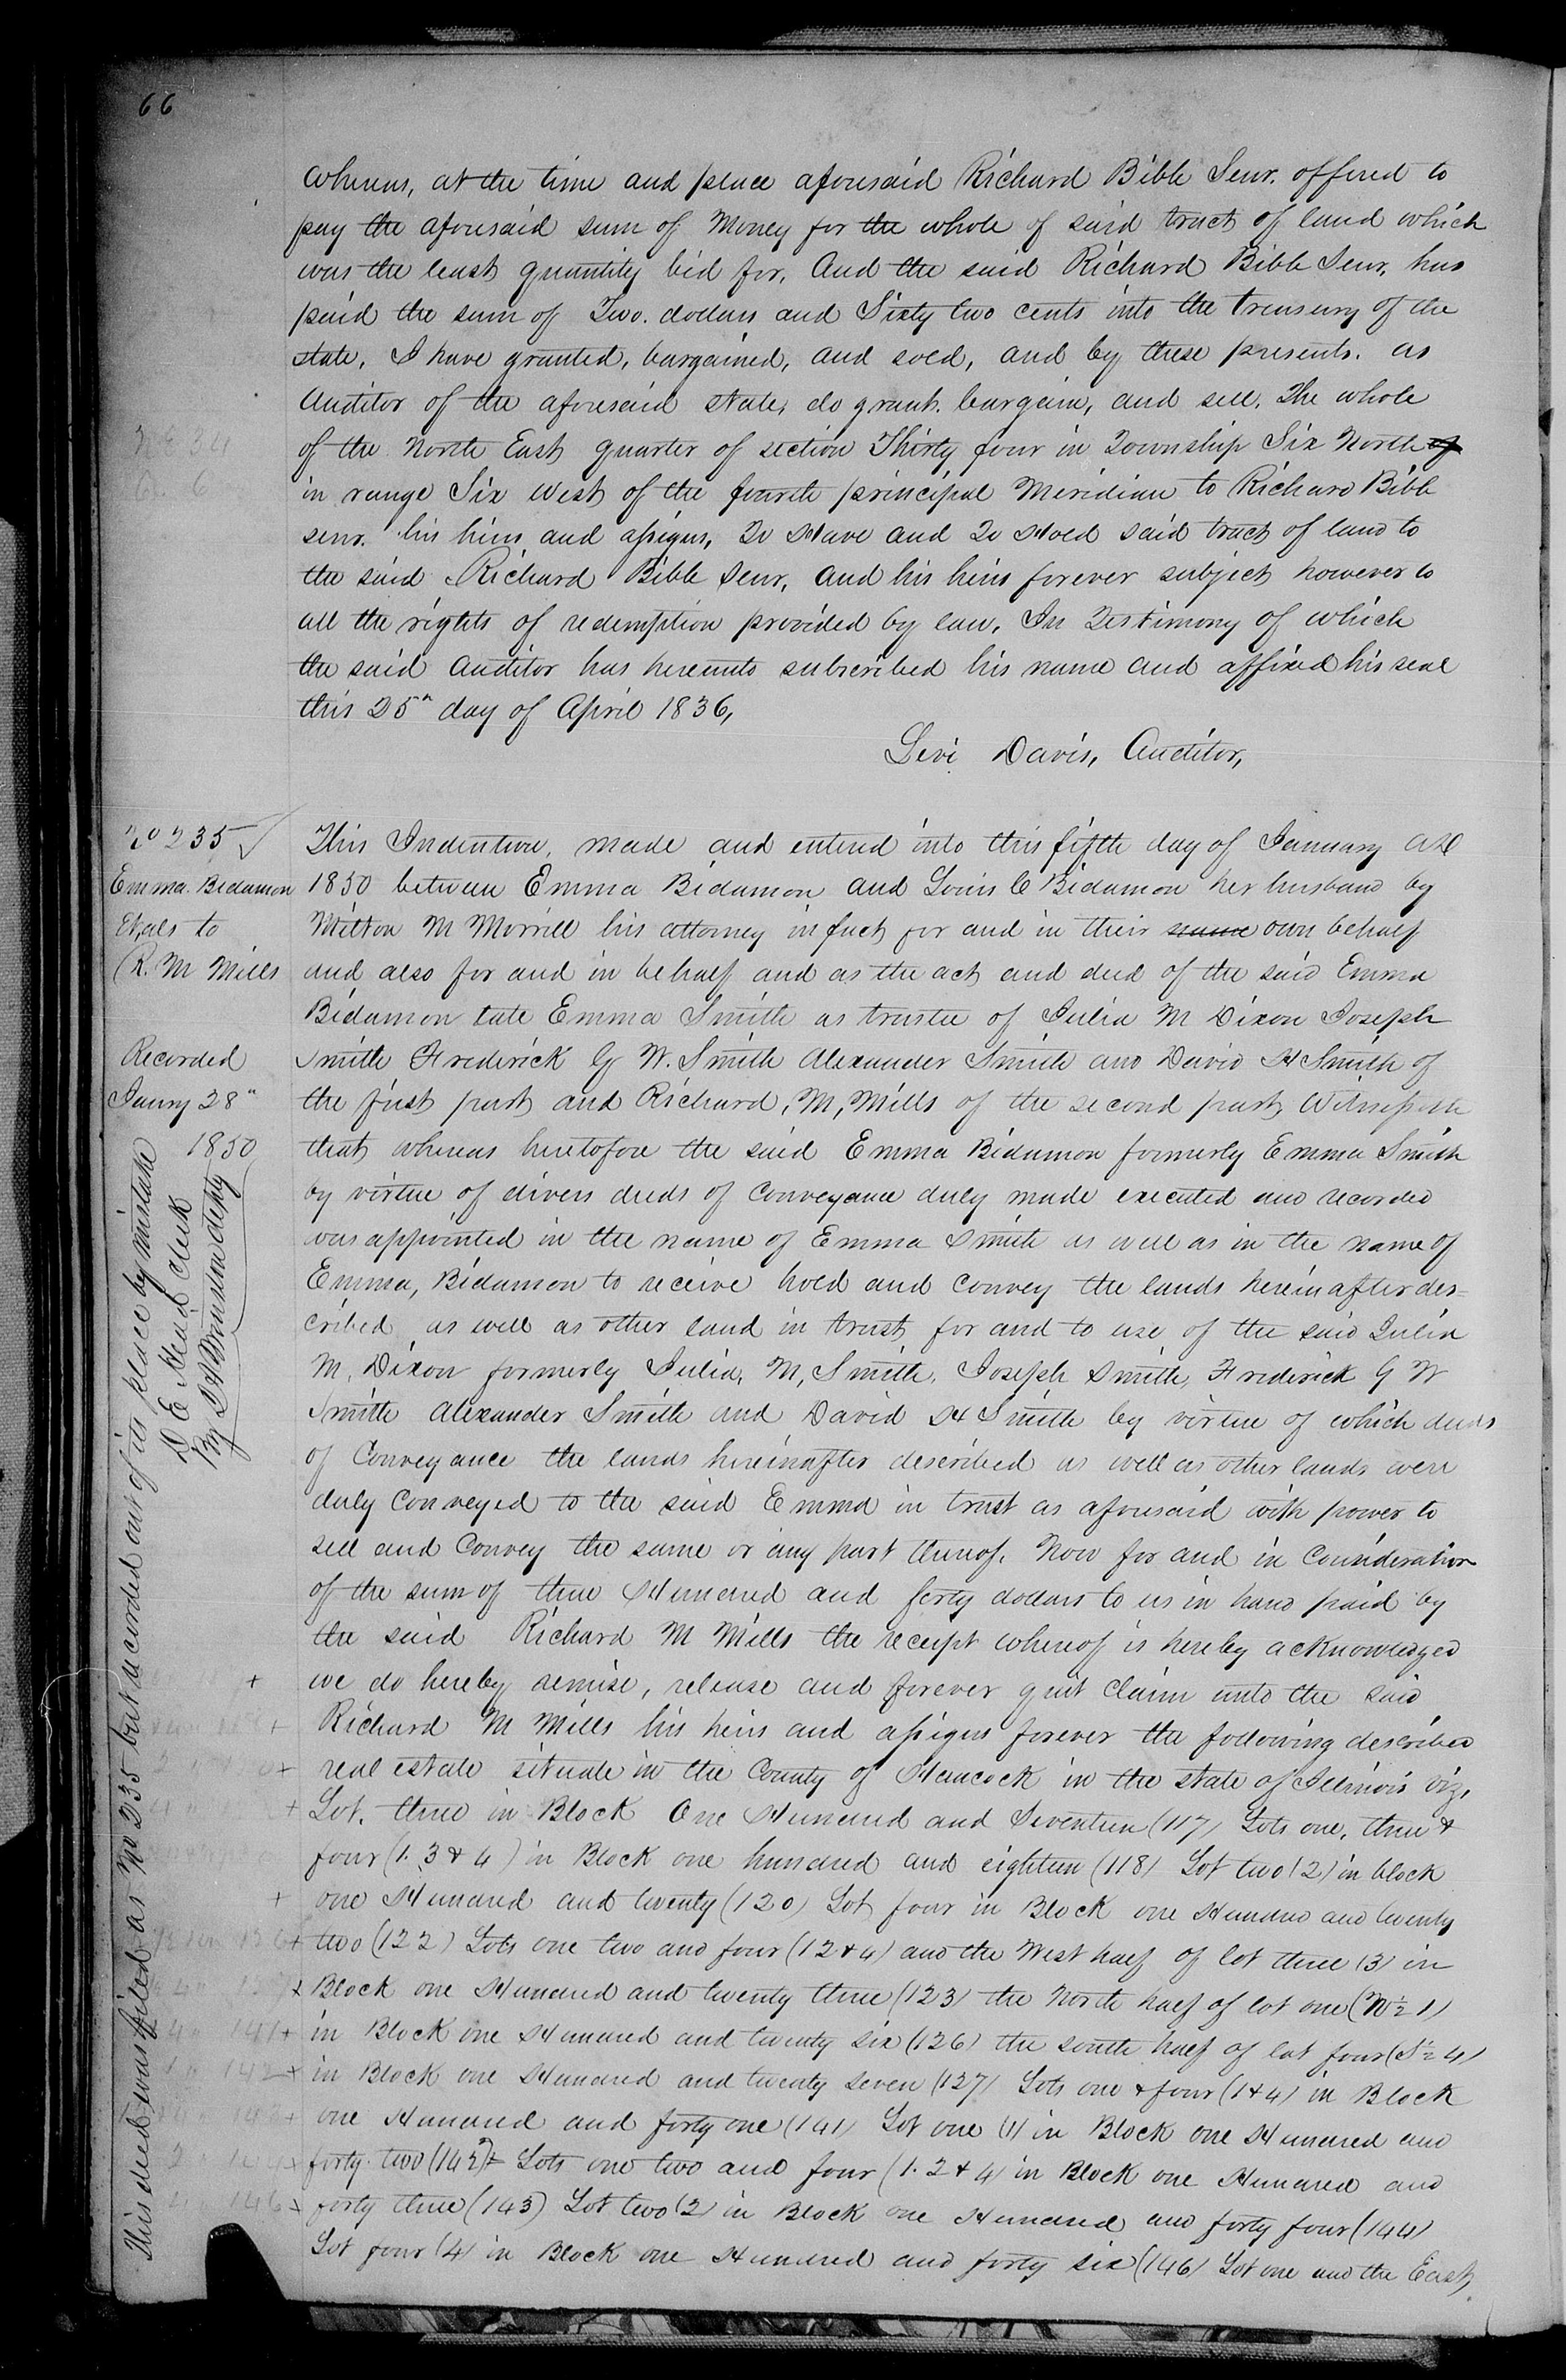 66
whereas, at the time and place aforesaid Richard Bibb Senr. offered to
pay the aforesaid sum of Money for the whole of said tract of land which
was the least quantity bid for, And the said Richard Bibb Senr, has
paid the sum of Two. dollars and Sixty two cents into the treasury of the
state, I have granted, bargained, and sold, and by these presents. as
Auditor of the aforesaid state, do grant. bargain, and sell, The whole
of the North East quarter of section Thirty four in Township Six North of
in range Six West of the fourth principal Meridian to Richard Bibb
senr. his heirs and assigns, To Have and To Hold said tract of land to
the said Richard Bibb Senr, and his heirs forever subject however to
all the rights of redemption provided by law, In Testimony of which
the said Auditor has hereunto subscribed his name and affixed his seal
this 25" day of April 1836,
Levi Davis, Auditor,
N E 34
6. 6
No 235
Emma Bidamon
Et, als to
R. M Mills
Recorded
Janry 28"
1850
This deed was filed as No 235 but recorded out of its place by mistake
D E Head clerk
By D S Wonston depty
This Indenture, made and entered into this fifth day of January AD
1850 between Emma Bidamon and Louis C Bidamon her husband by
Milton M Morrill his attorney in fact for and in their name own behalf
and also for and in behalf and as the act and deed of the said Emma
Bidamon late Emma Smith as trustee of Julia M Dixon Joseph
Smith Frederick G W. Smith Alexander Smith and David H Smith of
the first part and Richard, M, Mills of the second part, Witnesseth
that whereas heretofore the said Emma Bidamon formerly Emma Smith
by virtue of divers deeds of Conveyance duly made executed and recorded
was appointed in the name of Emma Smith as well as in the name of
Emma, Bidamon to receive hold and convey the lands hereinafter des=
cribed as well as other land in trust, for and to use of the said Julia
M, Dixon formerly Julia, M, Smith, Joseph Smith, Frederick G W
Smith Alexander Smith and David H Smith by virtue of which deeds
of Conveyance the lands hereinafter described as well as other lands were
duly Conveyed to the said Emma in trust as aforesaid with power to
sell and Convey the same or any part thereof. Now for and in Consideration
of the sum of three Hundred and forty dollars to us in hand paid by
the said Richard M Mills the receipt whereof is hereby acknowledged
+ we do hereby remise, release and forever quit claim unto the said
+ Richard M Mills his heirs and assigns forever the following described
+ real estate situate in the County of Hancock in the state of Illinois viz,
+ Lot, three in Block One Hundred and Seventeen (117) Lots one, three &
four (1. 3 & 4) in Block one hundred and eighteen (118) Lot two (2) in block
+ one Hundred and twenty (120) Lot four in Block one Hundred and twenty
+ two (122) Lots one two and four (1 2 & 4) and the West half of lot three (3) in
+ Block one Hundred and twenty three (123) the North half of lot one (N ½ 1)
141 + in Block one Hundred and twenty six (126) the south half of lot four (S ½ 4)
142 + in Block one Hundred and twenty seven (127) Lots one & four (1 & 4) in Block
+ one Hundred and forty one (141) Lot one (1) in Block one Hundred and
forty two (142) Lots one two and four (1. 2 & 4) in Block one Hundred and
146 forty three (143) Lot two (2) in Block one Hundred and forty four (144)
Lot four (4) in Block one Hundred and forty six (146) Lot one and the East,